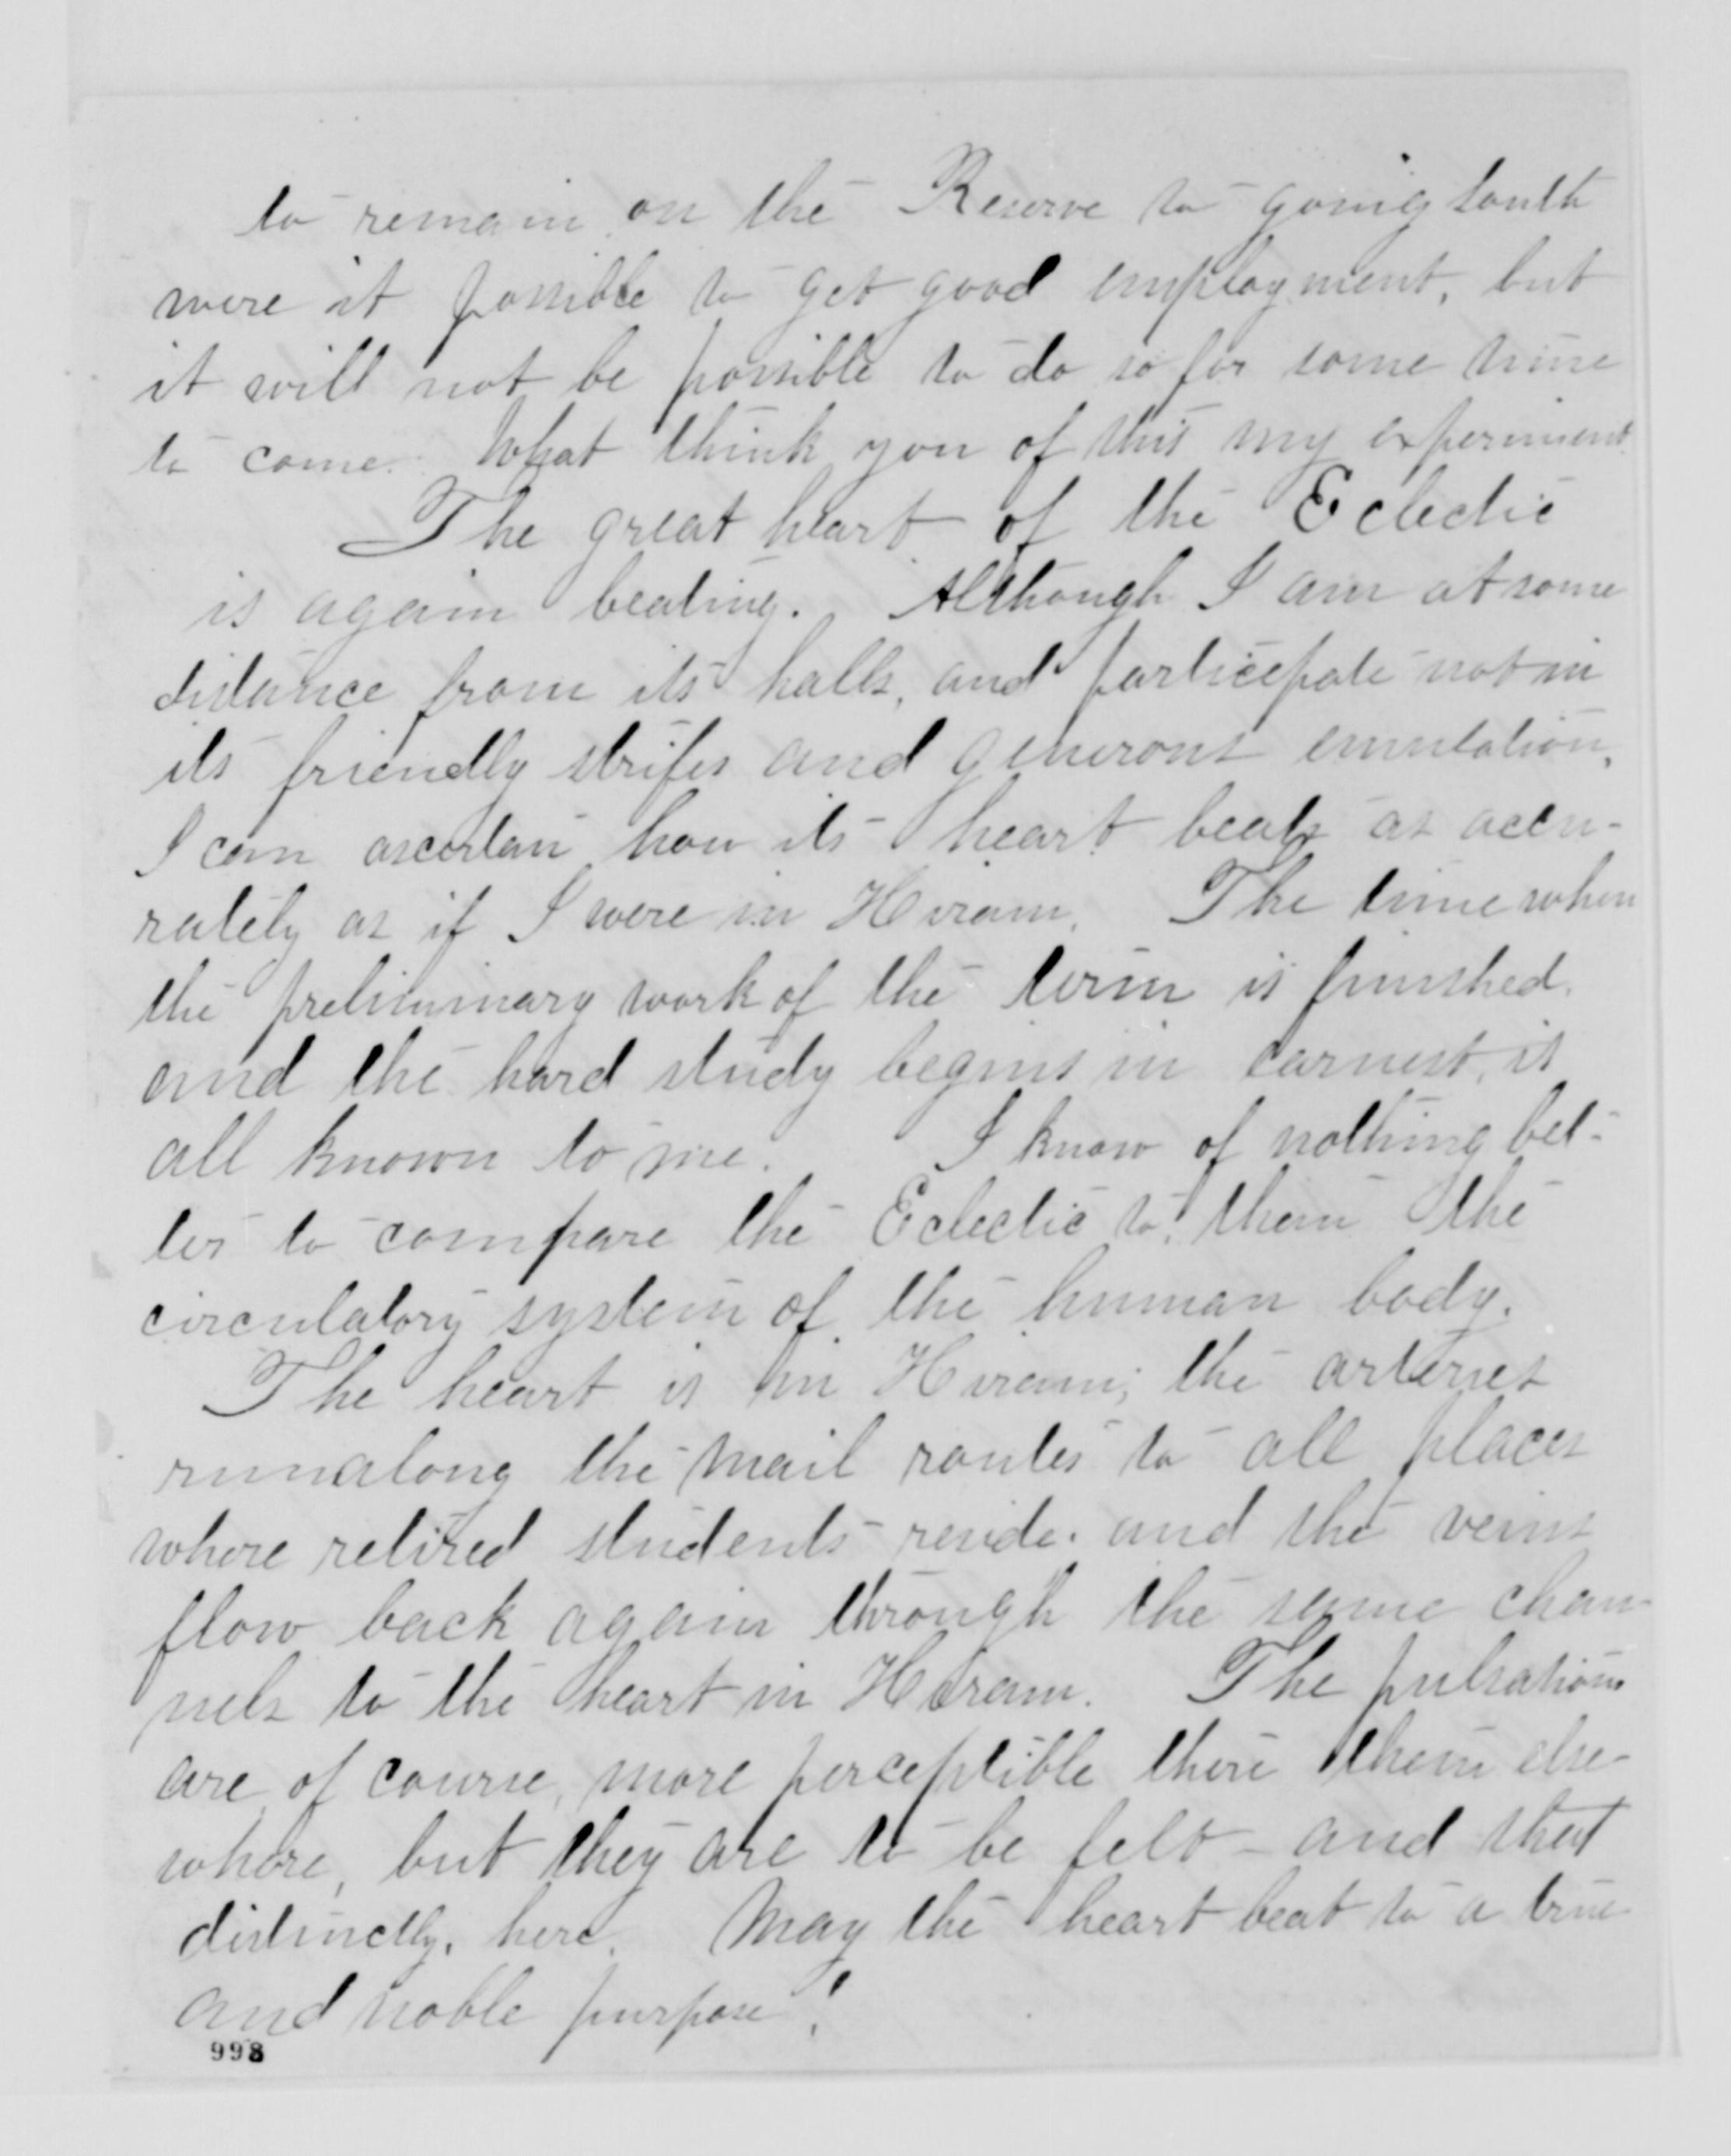 to remain on the Reserve to going South
were it possible to get good employment, but
it will not be possible to do so for some time
to come. What think you of this my experiment.
The great heart of the Eclectic
is again beating. Although I am at some
distance from its halls, and participate not in
its friendly strifes and generous emulation,
I can ascertain how its heart beats as accu-
rately as if I were in Hiram. The time when
the preliminary work of the term is finished.
and the hard study begins in earnest, is
all known to me. I know of nothing bet-
ter to compare the Eclectic to, than the
circulatory system of the human body.
The heart is in Hiram; the arteries
run along the mail routes to all places
where retired students reside. and the veins
flow back again through the same chan-
nels to the heart in Hiram. The pulsations
are, of course, more perceptible there than else-
where, but they are to be felt - and that
distinctly, here. May the heart beat to a true
and noble purpose!
998